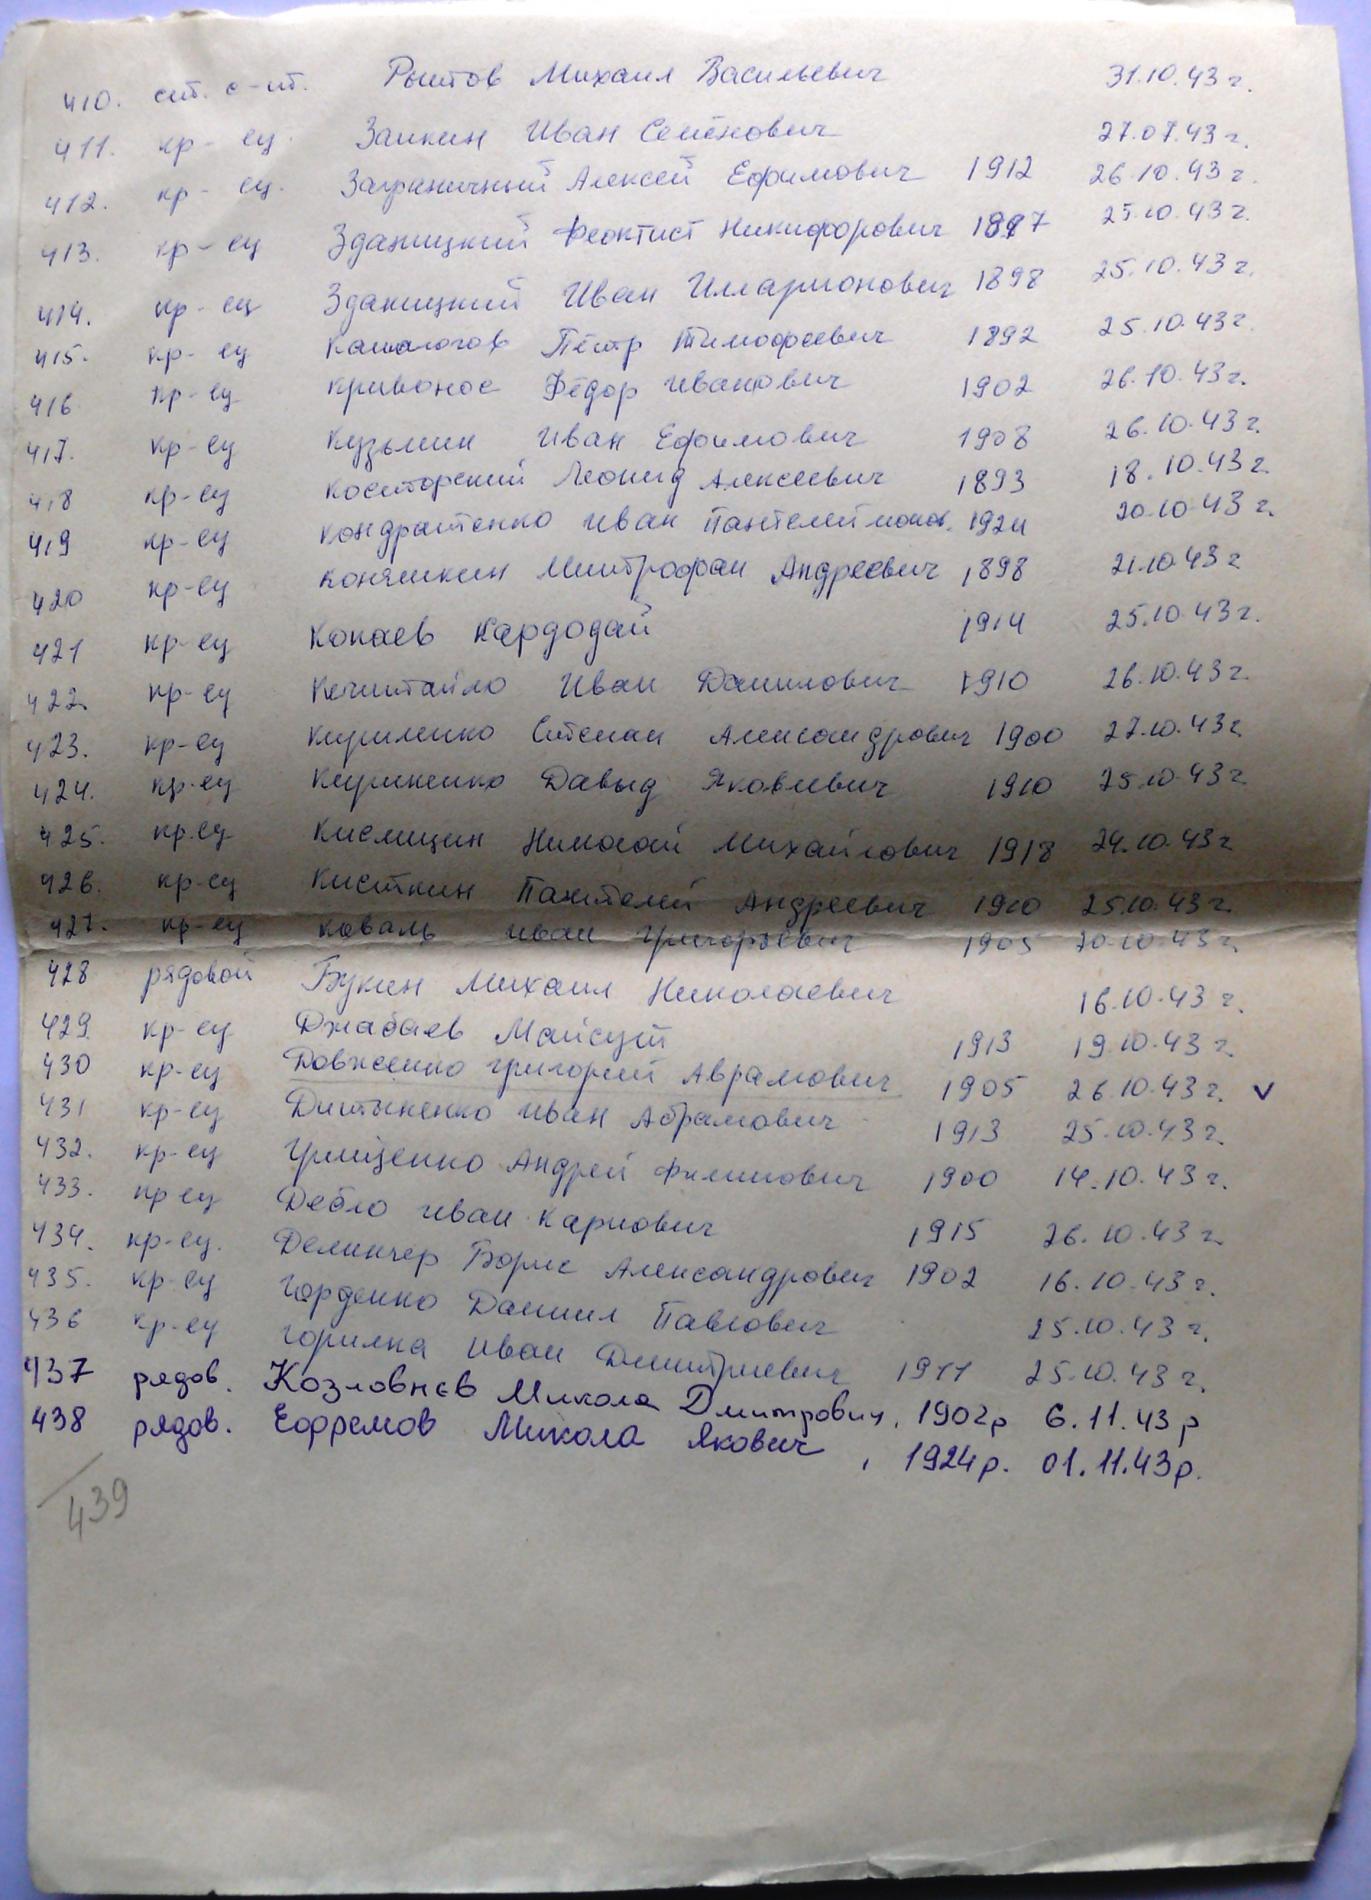 410. ст. с-нт. Рытов Михаил Васильевич 31.10.43 г.
411. кр-ец. Заикин Иван Семёнович 27.07.43 г.
412. кр-ец. Заграничный Алексей Ефимович 1912 26.10.43 г.
413. кр-ец Зданицкий Феоктист Никифорович 1897 25.10.43 г.
414. кр-ец Зданицкий Иван Илларионович 1898 25.10.43 г.
415. кр-ец Пётр Тимофеевич 1892 25.10.43 г.
416 кр-ец Кривонос Фёдор Иванович 1902 26.10.43 г.
417. кр-ец Кузьмин Иван Ефимович 1908 26.10.43 г.
418 кр-ец Леонид Алексеевич 1893 18.10.43 г.
419 кр-ец Кондратенко Иван Пантелеймонов. 1924 20.10.43 г.
420 кр-ец Коняшкин Митрофан Андреевич 1898 21.10.43 г
421 кр-ец Конаев Кардодай 1914 25.10.43 г.
422. кр-ец Иван Данилович 1910 26.10.43 г.
423. кр-ец Кириленко Степан Александрович 1900 27.10.43 г.
424. кр-ец Давыд Яковлевич 1910 25.10.43 г
425. кр.ец Кислицин Николай Михайлович 1918 24.10.43 г
426. кр-ец Кисткин Пантелей Андреевич 1910 25.10.43 г.
427. кр-ец Коваль Иван Григорьевич 1905 20.10.43 г.
428 рядовой Букин Михаил Николаевич 16.10.43 г.
429. кр-ец Джабаев 1913 19.10.43 г.
430 кр-ец Довженко Григорий Аврамович 1905 26.10.43 г. v
431 кр-ец Иван Абрамович 1913 25.10.43 г.
432. кр-ец Грищенко Андрей Филипович 1900 14.10.43 г.
433. кр ец Дебло Иван Карпович 1915 26.10.43 г.
434. кр-ец. Делинчер Борис Александрович 1902 16.10.43 г.
435. кр-ец Горденко Даниил Павлович 25.10.43 г.
436 кр-ец Горилка Иван Дмитриевич 1911 25.10.43 г.
437 рядов. Козловнєв Микола Дмитрович, 1902р 6.11.43 р
438 рядов. Ефремов Микола Якович, 1924р. 01.11.43р.
439